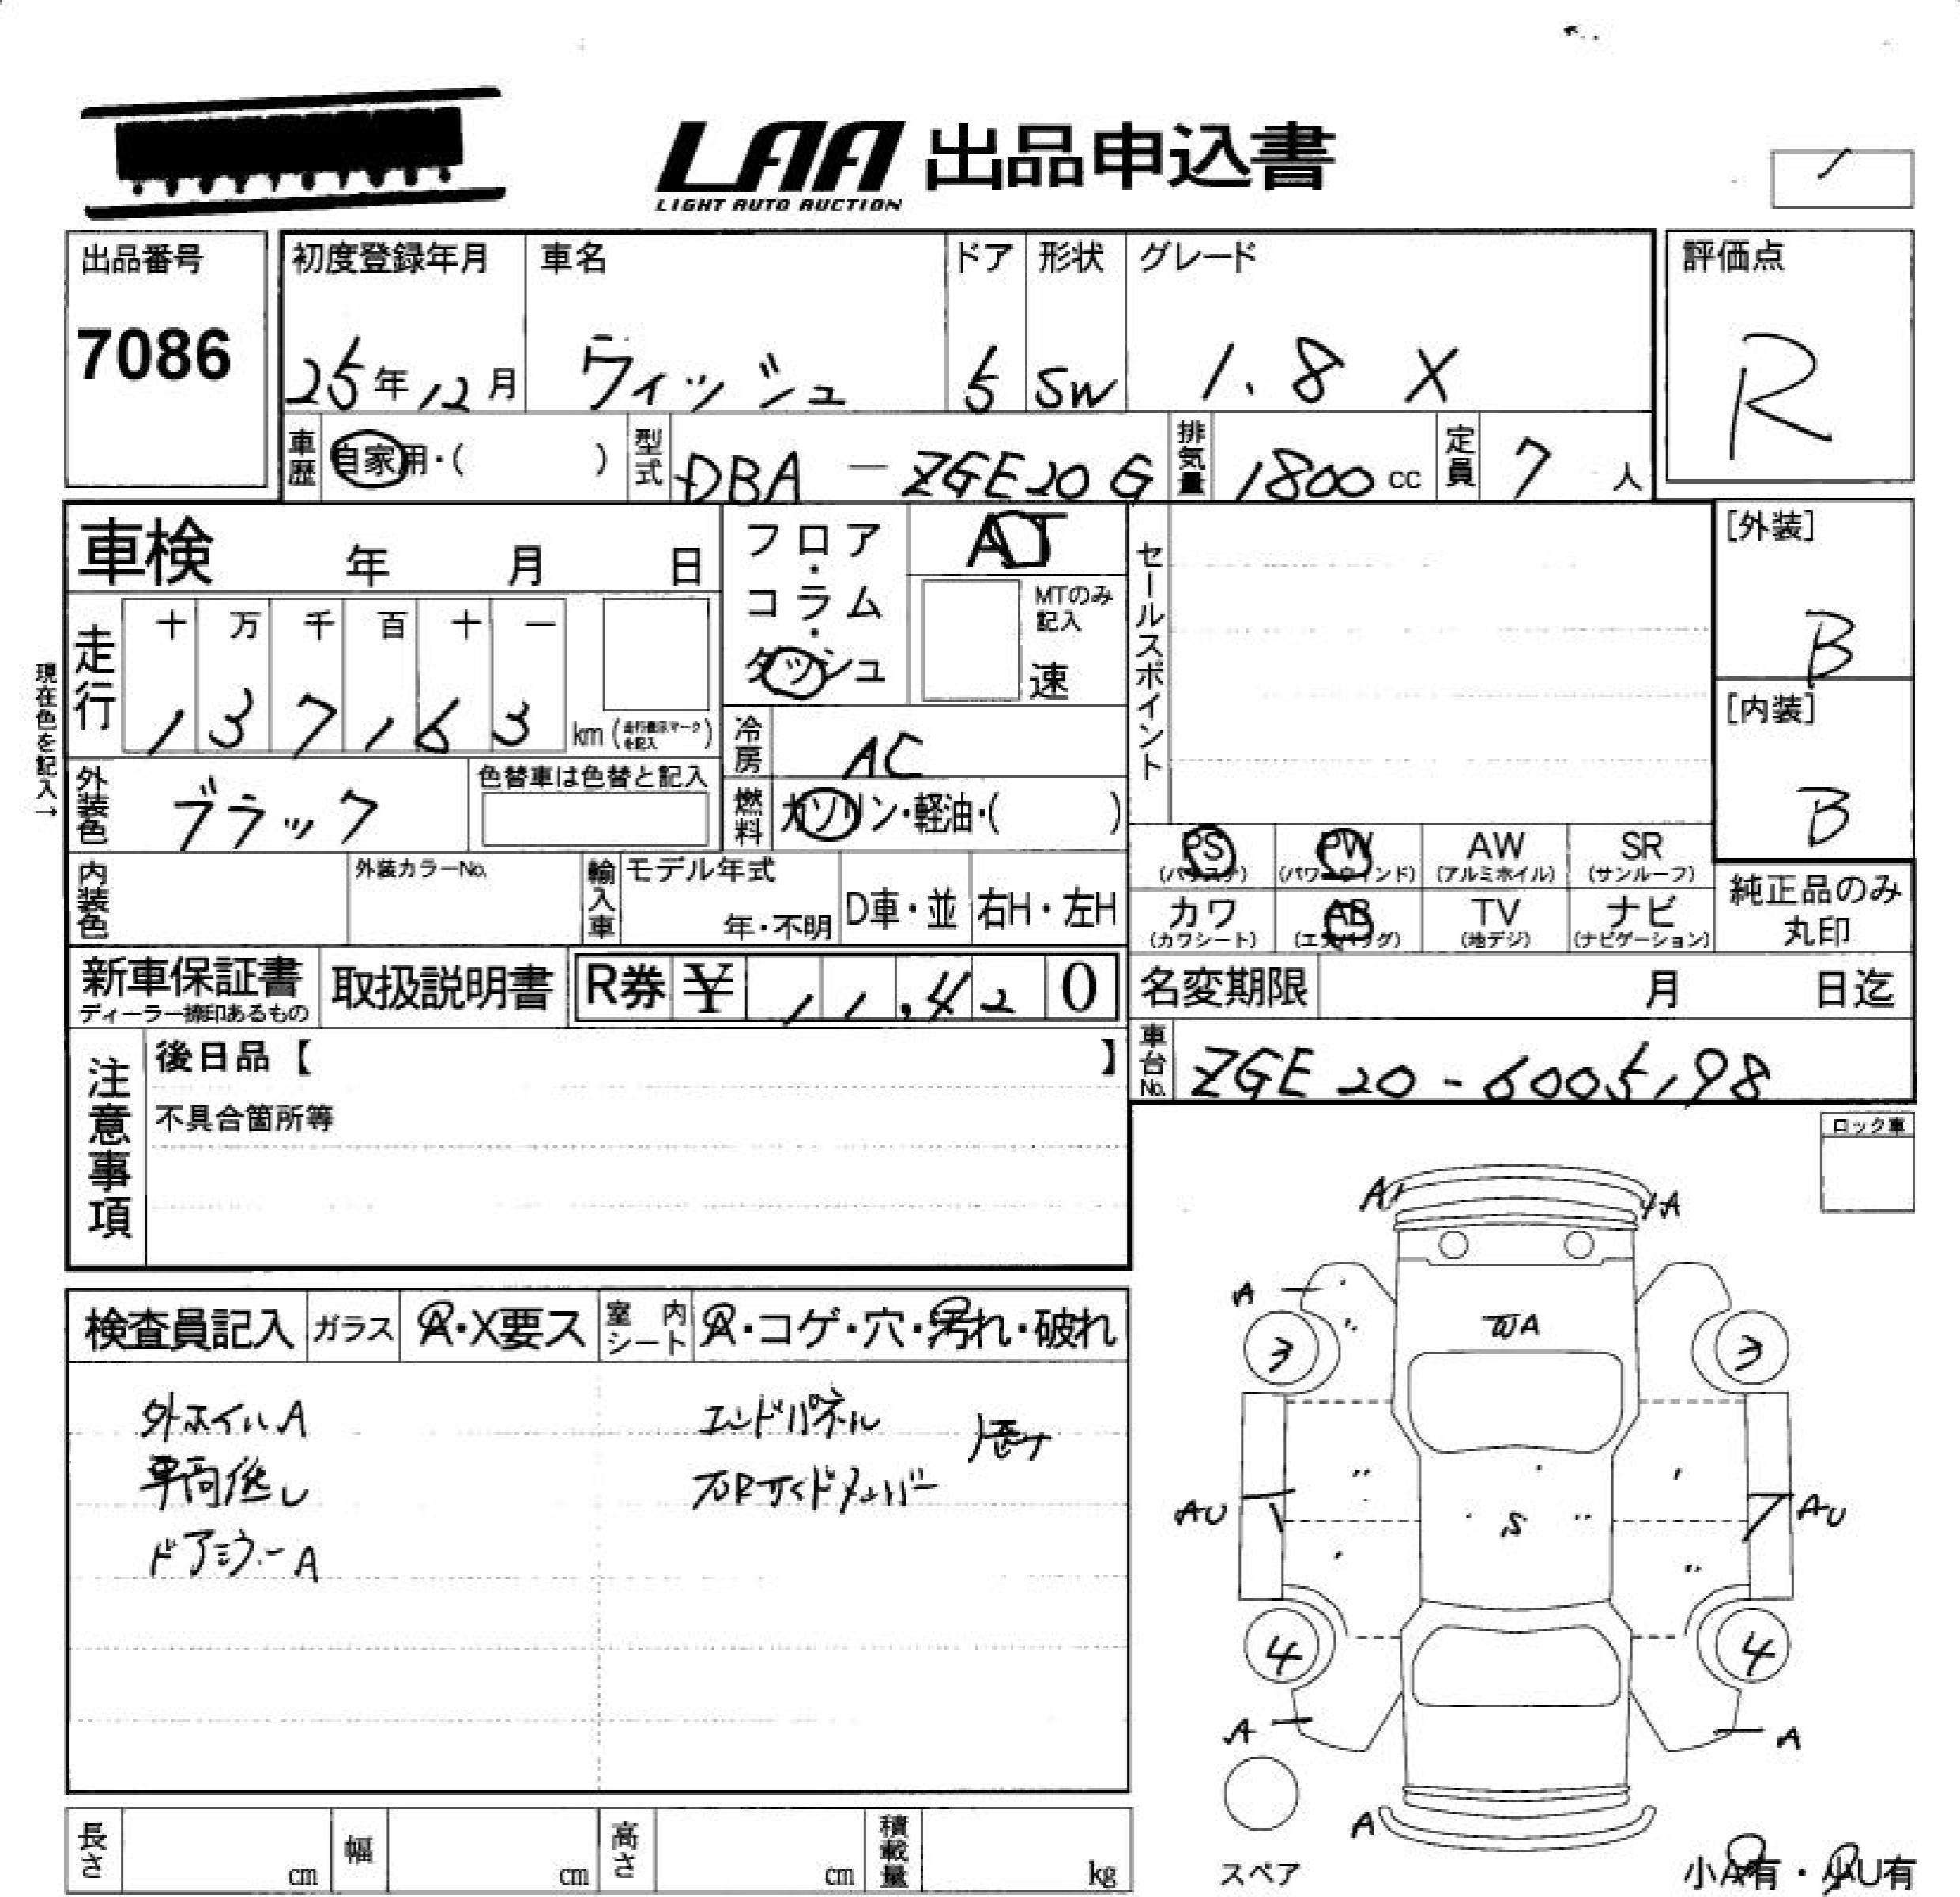 LAA 出品申込書
LIGHT AUTO AUCTION
出品番号
7086
初度登録年月
25年12月
車名
ウィッシュ
ドア
5
形状
SW
グレード
1.8 X
評価点
R
車歴
自家用・( )
型式
DBA-ZGE20G
排気量
1800cc
定員
7人
車検 年 月 日
フロア・コラム・ダッシュ
AT
MTのみ記入
速
セールスポイント
[外装]
B
[内装]
B
現在色を記入→
走行
十 万 千 百 十 一
1 3 7 1 6 3 km(走行表示マークを記入)
冷房
AC
外装色
ブラック
色替車は色替と記入
燃料
ガソリン・軽油・( )
PS
(パワステ)
PW
(パワーウインド)
AW
(アルミホイル)
SR
(サンルーフ)
カワ
(カワシート)
AB
(エアバッグ)
TV
(地デジ)
ナビ
(ナビゲーション)
純正品のみ
丸印
内装色
外装カラーNo.
輸入車
モデル年式
年・不明
D車・並
右H・左H
新車保証書
ディーラー捺印あるもの
取扱説明書
R券 ¥ 11,420
名変期限 月 日迄
車台No.
ZGE20-6005198
注意事項
後日品【 】
不具合箇所等
ロック車
検査員記入
ガラス
A・X要ス
室内シート
A・コゲ・穴・汚れ・破れ
外ホイルA
車高低し
ドアミラーA
エンドパネル
右Rサイドメンバー
A
A
A
WA
3
3
AU
S
AU
4
4
A
A
A
スペア
小A有・小U有
長さ
cm
幅
cm
高さ
cm
積載量
kg